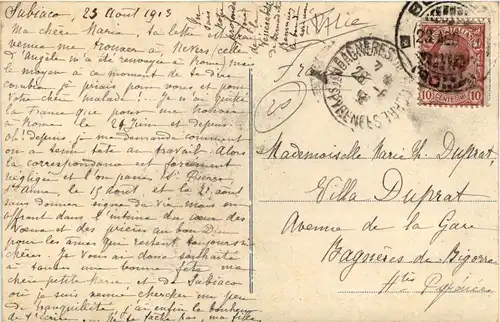 Subiaco, 23 Août 1913
Ma chère Marie, ta lettre est
venue me trouver à Nevers, celle
d'Angèle m'a été renvoyée à Rome, mais
le moyen à ce moment de te dire
combien je priais pour vous et pour
votre chère malade!.. Je n'ai quitté
la France que pour me trouver
à Rome le 24 juin et depuis
oh! depuis je me demande comment
on a tenu tête au travail. Alors
la correspondance est forcément
négligée et l'on passe St Pierre
Ste Anne, le 15 Août, et le 21 Août
sans donner signe de vie mais en
offrant dans l'intime du cœur des
vœux et des prières au bon Dieu
pour les âmes que restent toujours
chères. Je vous ai donc souhaité
à toutes une bonne fête, ma
chère petite Marie, et de Subiaco
où je suis venue chercher un peu
de tranquillité j'ai enfin le bonheur
ma fille
Italie
BAGNERES
PYRENEES
10 CENTESIMI 10
Mademoiselle Marie Th. Duprat,
Villa Duprat
Avenue de la Gare
Bagnères de Bigorre
Htes Pyrénées